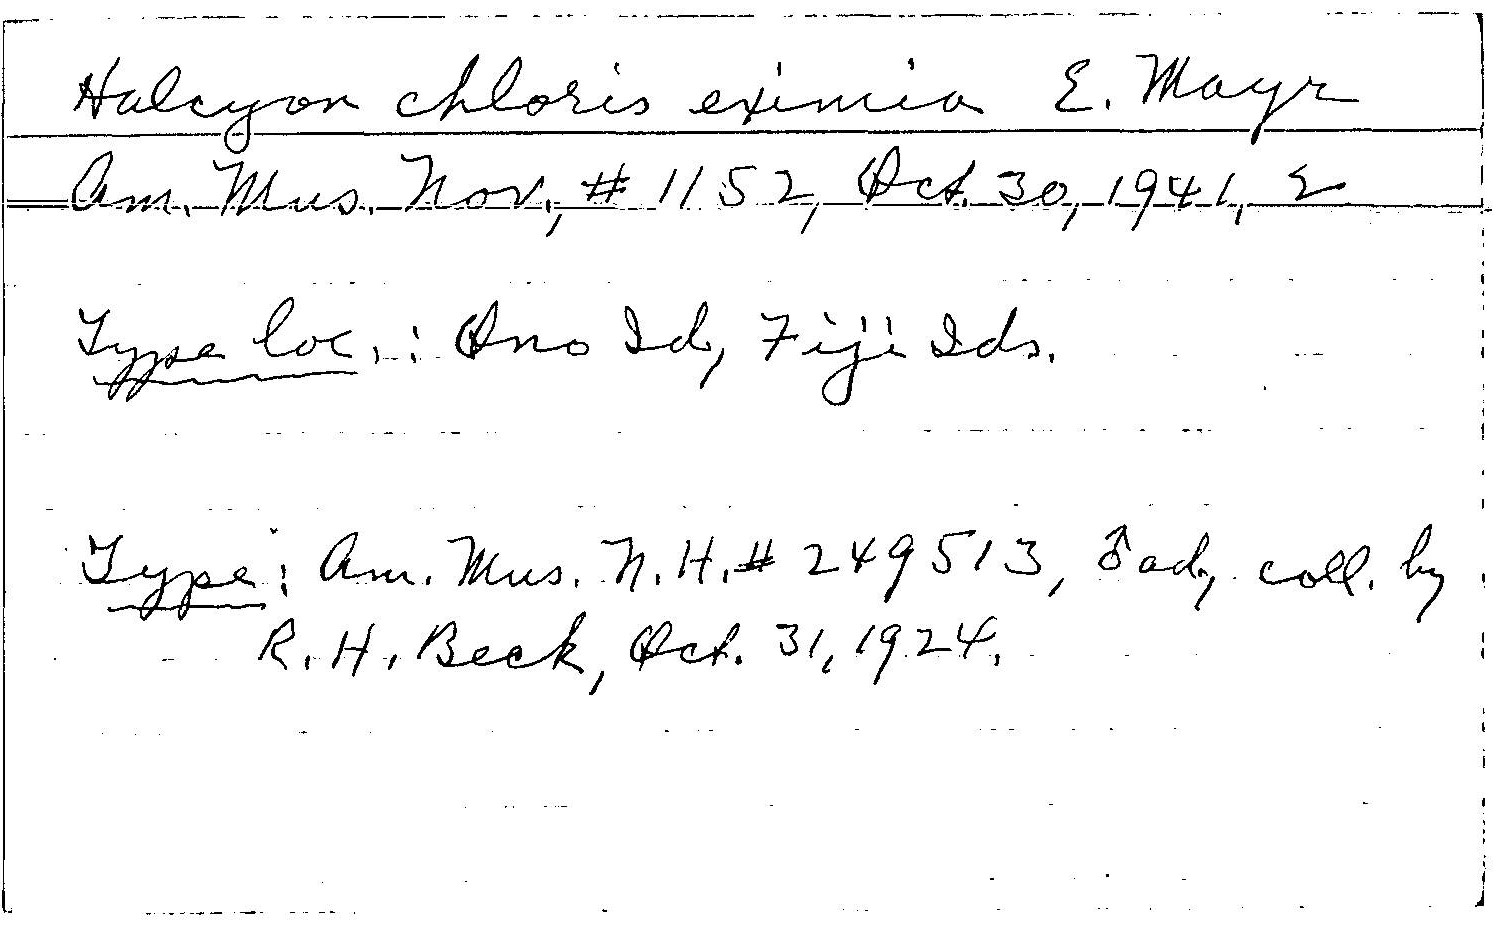 Halcyon chloris eximia E. Mayr
Am. Mus. Nov., # 1152, Oct. 30, 1941, 2
Type loc.: Ono Id, Fiji Ids.
Type: Am. Mus. N. H. # 249513, ♂ ad, coll. by
R. H. Beck, Oct. 31, 1924.